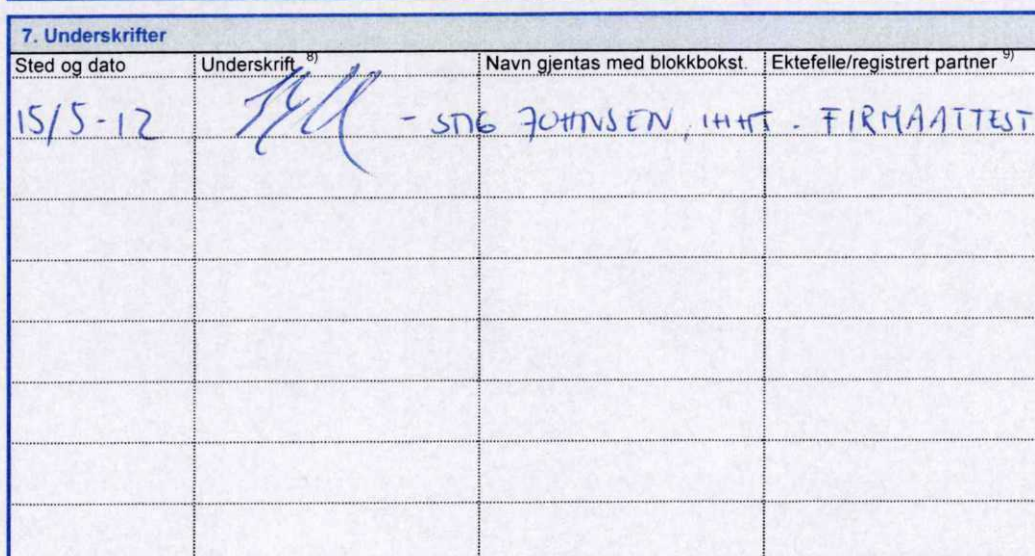 7. Underskrifter
Sted og dato Underskrift 8) Navn gjentas med blokkbokst. Ektefelle/registrert partner 9)
15/5-12 - STIG JOHNSEN, IHHT. FIRMAATTEST